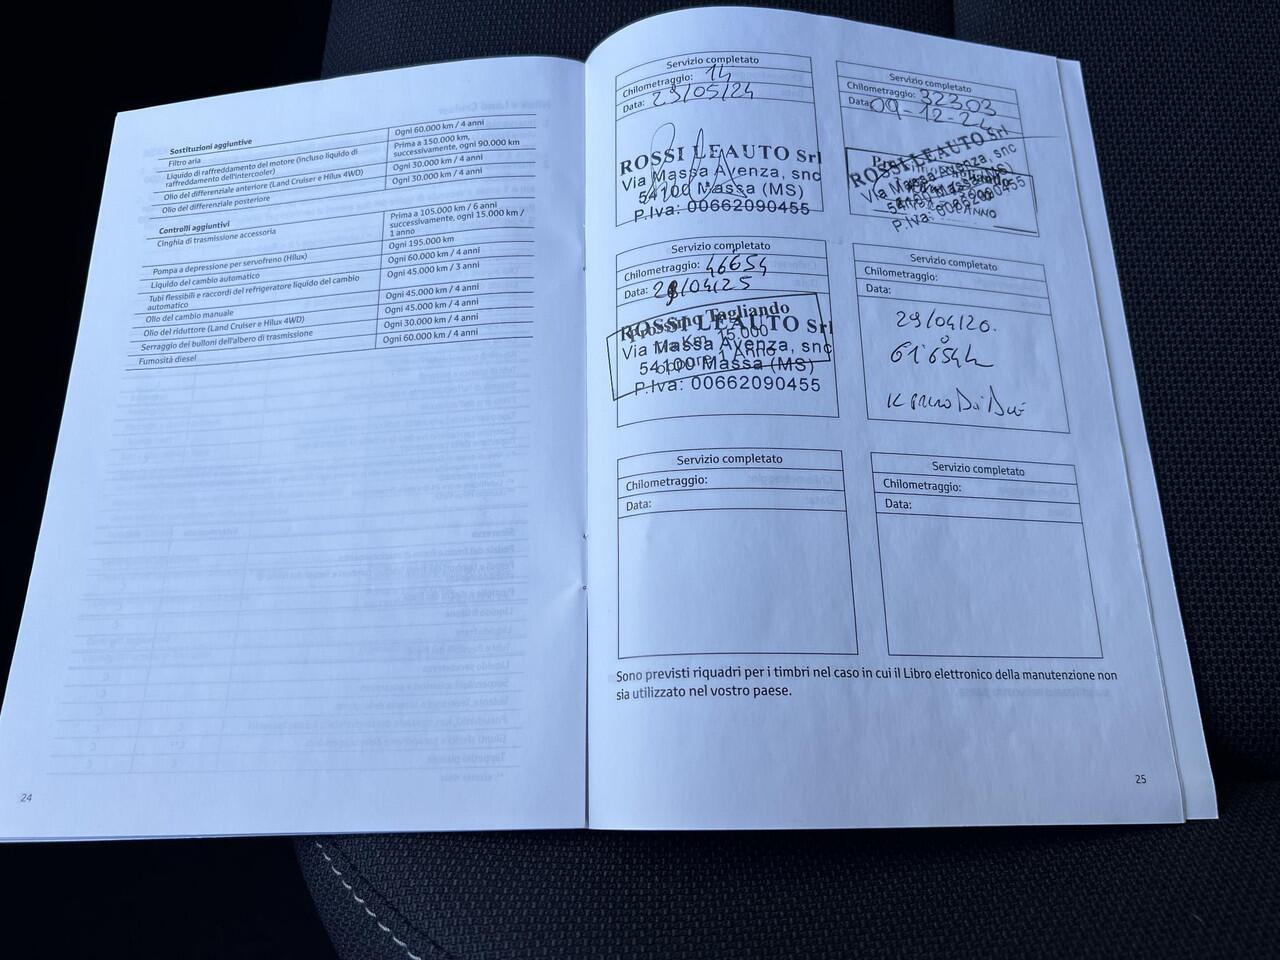 Sostituzioni aggiuntive
Ogni 60.000 km / 4 anni
Filtro aria
Prima a 150.000 km,
successivamente, ogni 90.000 km
Liquido di raffreddamento del motore (incluso liquido di
raffreddamento dell'intercooler)
Ogni 30.000 km / 4 anni
Olio del differenziale anteriore (Land Cruiser e Hilux 4WD)
Ogni 30.000 km / 4 anni
Olio del differenziale posteriore
Controlli aggiuntivi
Cinghia di trasmissione accessoria
Prima a 105.000 km / 6 anni
successivamente, ogni 15.000 km /
1 anno
Pompa a depressione per servofreno (Hilux)
Ogni 195.000 km
Liquido del cambio automatico
Ogni 60.000 km / 4 anni
Tubi flessibili e raccordi del refrigeratore liquido del cambio
automatico
Ogni 45.000 km / 3 anni
Olio del cambio manuale
Ogni 45.000 km / 4 anni
Olio del riduttore (Land Cruiser e Hilux 4WD)
Ogni 45.000 km / 4 anni
Serraggio dei bulloni dell'albero di trasmissione
Ogni 30.000 km / 4 anni
Fumosità diesel
Ogni 60.000 km / 4 anni
24
Servizio completato
Chilometraggio: 14
Data: 29/05/24
ROSSI LEAUTO Srl
Via Massa Avenza, snc
54100 Massa (MS)
P.Iva: 00662090455
Servizio completato
Chilometraggio: 32303
Data: 09-12-24
ROSSI LEAUTO Srl
Via Massa Avenza, snc
P.Iva: 00662090455
ANNO
Servizio completato
Chilometraggio: 46654
Data: 28/04/25
Prossimo Tagliando
ROSSI LEAUTO Srl
15.000
Via Massa Avenza, snc
oppure 1 Anno
54100 Massa (MS)
P.Iva: 00662090455
Servizio completato
Chilometraggio:
Data:
29/04/20.
61'654
Servizio completato
Chilometraggio:
Data:
Servizio completato
Chilometraggio:
Data:
Sono previsti riquadri per i timbri nel caso in cui il Libro elettronico della manutenzione non
sia utilizzato nel vostro paese.
25